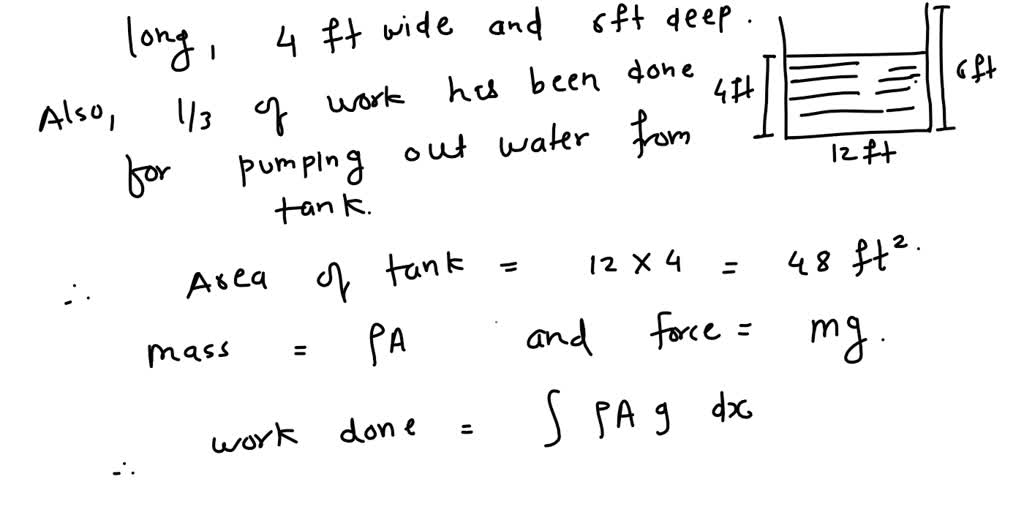 long, 4 ft wide and 6ft deep.
Also, 1/3 of work has been done
for pumping out water from
tank.
4ft
6ft
12ft
∴ Area of tank = 12 × 4 = 48 ft².
mass = ρA and force = mg.
∴ work done = ∫ ρA g dx